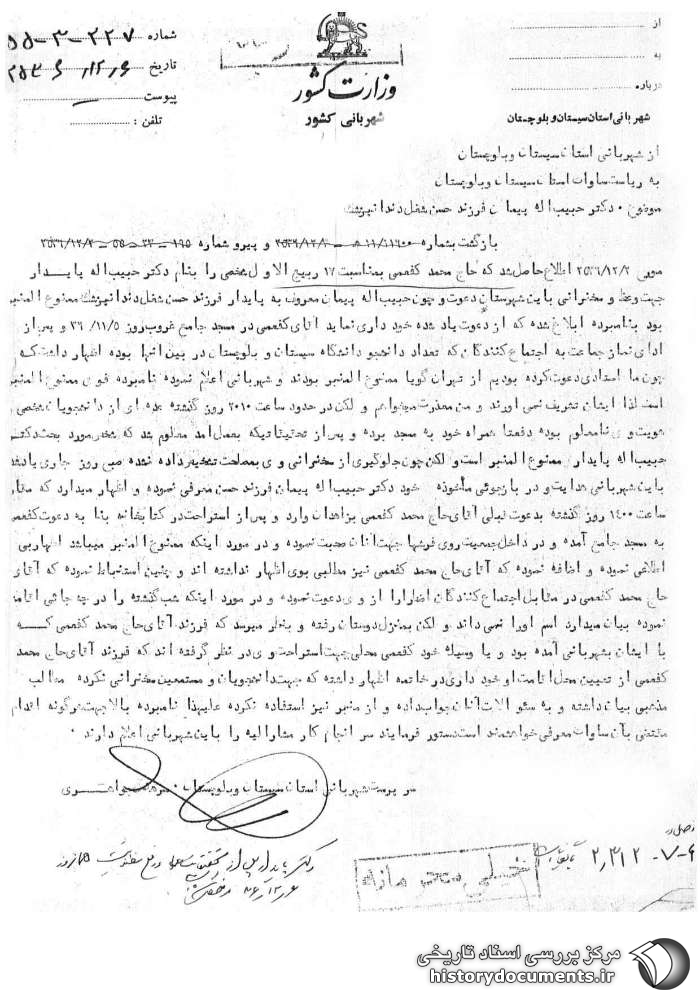 شماره ۵۵-۳-۲۲۷
تاریخ ۲۵۳۶/۱۲/۶
پیوست
تلفن :
از
به
درباره
وزارت کشور
شهربانی کشور
شهربانی استان سیستان و بلوچستان
از شهربانی استان سیستان و بلوچستان
به ریاست ساواک استان سیستان و بلوچستان
موضوع ۰ دکتر حبیب اله پیمان فرزند حسن شغل دندانپزشک
بازگشت بشماره و پیرو شماره ۱۹۵-۲۲-۵۵-۲۵۳۶/۱۲/۲
مورخه ۲۵۳۶/۱۲/۲ اطلاع حاصل شد که حاج محمد کفعمی بمناسبت ۱۷ ربیع الاول شخصی را بنام دکتر حبیب اله پایدار
جهت وعظ و سخنرانی باین شهرستان دعوت و چون حبیب اله پیمان معروف به پایدار فرزند حسن شغل دندانپزشک ممنوع المنبر
بود بنامبرده ابلاغ شده که از دعوت یاد شده خود داری نماید آقای کفعمی در مسجد جامع غروب روز ۳۶/۱۱/۵ و پس از
ادای نماز جماعت به اجتماع کنندگان که تعداد دانشجو دانشگاه سیستان و بلوچستان در بین آنها بوده اظهار داشت که
چون ما استادی دعوت کرده بودیم از تهران گویا ممنوع المنبر بودند و شهربانی اعلام نموده نامبرده فوق ممنوع المنبر
است لذا ایشان تشریف نمی آورند و من معذرت میخواهم و لکن در حدود ساعت ۲۰۱۰ روز گذشته عده ای از دانشجویان شخصی
هویت وی نامعلوم بوده دفعتا همراه خود به مسجد برده و پس از تحقیقاتیکه بعمل آمد معلوم شد که شخص مورد بحث دکتر
حبیب اله پایدار ممنوع المنبر است و لکن چون جلوگیری از سخنرانی وی بمصلحت تشخیص داده نشده صبح روز جاری یادشده
باین شهربانی هدایت و در بازجوئی مأخوذه خود دکتر حبیب اله پیمان فرزند حسن معرفی نموده و اظهار میدارد که
ساعت ۱۴۰۰ روز گذشته بدعوت قبلی آقای حاج محمد کفعمی بزاهدان وارد و پس از استراحت در کتابخانه بنا به دعوت کفعمی
به مسجد جامع آمده و در داخل جمعیت روی فرشها جهت آنان صحبت نموده و در مورد اینکه ممنوع المنبر میباشد اظهار بی
اطلاعی نموده و اضافه نموده که آقای حاج محمد کفعمی نیز مطلبی بوی اظهار نداشته اند و چنین استنباط نموده که آقای
حاج محمد کفعمی در مقابل اجتماع کنندگان اظهارا از وی دعوت نموده و در مورد اینکه شب گذشته را در چه جائی اقامت
نموده بیان میدارد اسم اورا نمی داند و لکن بمنزل دوستان رفته و بنظر میرسد که فرزند آقای حاج محمد کفعمی که
با ایشان بشهربانی آمده بود و یا وسیله خود کفعمی محلی جهت استراحت وی در نظر گرفته اند که فرزند آقای حاج محمد
کفعمی از تعیین محل اقامت او خود داری در خاتمه اظهار داشته که جهت دانشجویان و مستمعین سخنرانی نکرده مطالب
مذهبی بیان داشته و به سئوالات آنان جواب داده و از منبر نیز استفاده نکرده علیهذا نامبرده بالا جهت هرگونه اقدام
مقتضی بآن ساواک معرفی خواهشمند است دستور فرمایند سر انجام کار مشارالیه را باین شهربانی اعلام دارند ۰
سرپرست شهربانی استان سیستان و بلوچستان ۰ سرهنگ جواهری
۲۳۱۲-۷-۶
خیلی محرمانه
مرکز بررسی اسناد تاریخی
historydocuments.ir